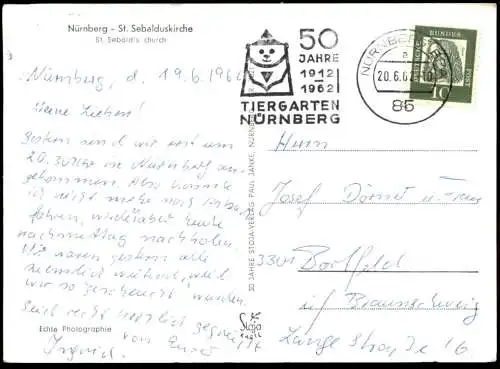 Nürnberg - St. Sebalduskirche
St. Sebald's church
Nürnberg, d. 19.6.1962
Meine Lieben!
Gestern sind wir erst um
20.30 Uhr in Nürnberg an-
gekommen. Also konnte
ich nicht mehr nach
fahren, werde aber heute
nachmittag nachholen.
Wir waren gestern alle
ziemlich müde, weil
wir so geschaukelt wurden.
Seid recht herzlich gegrüßt
von Eurer
Ingrid.
Echte Photographie
50 JAHRE STOJA-VERLAG PAUL JANKE, NÜRNBERG
Stoja
50
JAHRE
1912
1962
TIERGARTEN
NÜRNBERG
NÜRNBERG
a
20.6.62
85
DEUTSCHE BUNDESPOST
10
Herrn
Josef Dörner u. Frau
3301 Bortfeld
üb Braunschweig
Lange Straße 16